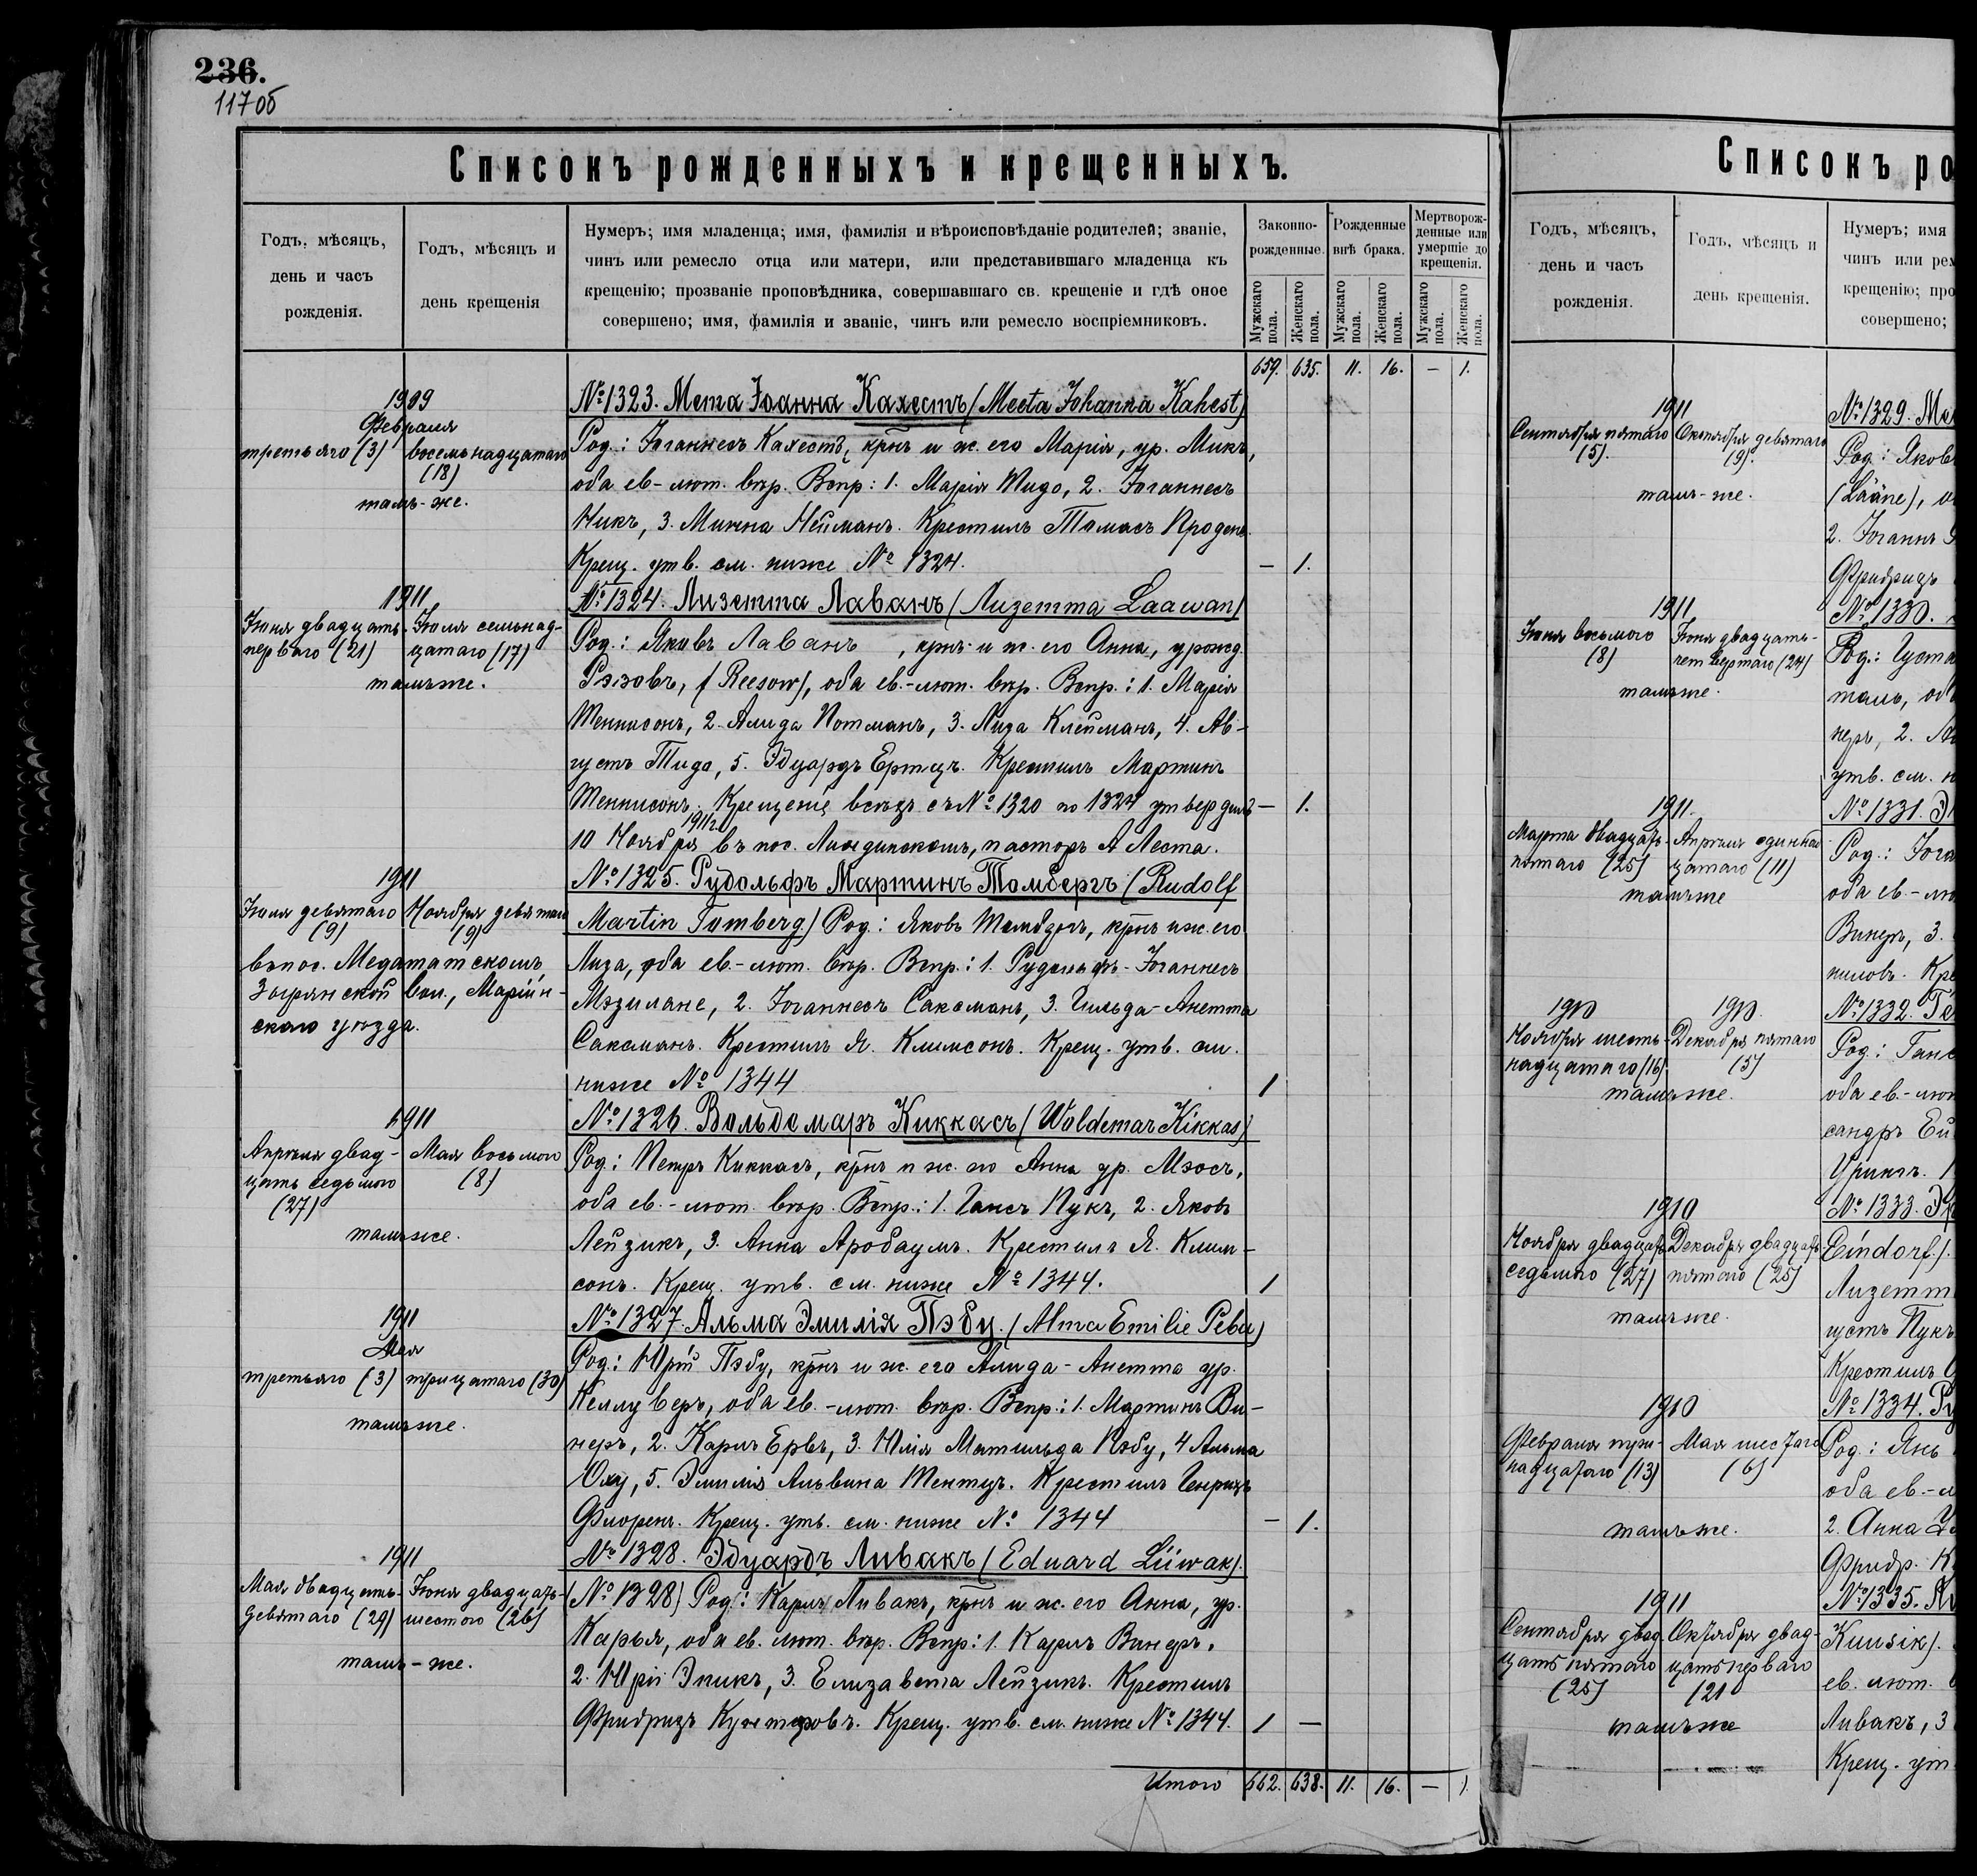 236.
117 об
Списокъ рожденныхъ и крещенныхъ.
Годъ, мѣсяцъ,
день и часъ
рожденія.
Годъ, мѣсяцъ и
день крещенія
Нумеръ; имя младенца; имя, фамилія и вѣроисповѣданіе родителей; званіе,
чинъ или ремесло отца или матери, или представившаго младенца къ
крещенію; прозваніе проповѣдника, совершавшаго св. крещеніе и гдѣ оное
совершено; имя, фамилія и званіе, чинъ или ремесло воспріемниковъ.
Законно-
рожденные.
Рожденные
внѣ брака.
Мертворож-
денные или
умершіе до
крещенія.
Мужскаго пола.
Женскаго пола.
Мужскаго пола.
Женскаго пола.
Мужскаго пола.
Женскаго пола.
659. 635. 11. 16. — 1.
1909
Февраля
третьяго (3)
восемьнадцатаго
(18)
тамъ-же.
№ 1323. Мета Іоанна Кахестъ (Meeta Johanna Kahest)
Род.: Іоганнесъ Кахестъ, крнъ и ж. его Марія, ур. Микъ,
оба ев-лют. вѣр. Вспр: 1. Марія Тидо, 2. Іоганнесъ
Никъ, 3. Минна Нейманъ. Крестилъ Томасъ Продень.
Крещ. утв. см. ниже № 1324. — 1.
1911
Іюня двадцать-
перваго (21)
Іюля семьнад-
цатаго (17)
тамъже.
№ 1324. Лизетта Лаванъ (Лизетта Laawan)
Род.: Яковъ Лаванъ, крнъ и ж. его Анна, урожд.
Рэзовъ, (Reesow), оба ев.-лют. вѣр. Вспр.: 1. Марія
Теннисонъ, 2. Алида Потманъ, 3. Лиза Клейманъ, 4. Ав-
густъ Тидо, 5. Эдуардъ Ертцъ. Крестилъ Мартинъ
Теннисонъ. Крещеніе всѣхъ съ № 1320 по 1324 утвердилъ — 1.
1911 г.
10 Ноября въ пос. Линдинскомъ, пасторъ А Леста.
1911
Іюля девятаго
(9)
Ноября девятаго
(9)
въ пос. Медататскомъ,
Зырянской вол., Маріин-
скаго уѣзда.
№ 1325. Рудольфъ Мартинъ Томбергъ (Rudolf
Martin Tomberg.) Род.: Яковъ Томбергъ, крнъ и ж. его
Лиза, оба ев.-лют. вѣр. Вспр.: 1. Рудольфъ-Іоганнесъ
Мэзилане, 2. Іоганнесъ Саксманъ, 3. Гильда-Анетта
Саксманъ. Крестилъ Я. Климсонъ. Крещ. утв. см.
ниже № 1344 1
1911
Апрѣля двад-
цать седьмого
(27)
Мая восьмого
(8)
тамъже.
№ 1326. Вольдемаръ Киккасъ (Woldemar Kikkas)
Род.: Петръ Киккасъ, крнъ и ж. его Анна ур. Мэосъ,
оба ев.-лют. вѣр. Вспр.: 1. Гансъ Пукъ, 2. Яковъ
Лейзикъ, 3. Анна Аробаумъ. Крестилъ Я. Клим-
сонъ. Крещ. утв. см. ниже № 1344. 1
1911
Мая
третьяго (3)
трицатаго (30)
тамъже.
№ 1327. Альма Эмилія Пэбу. (Alma Emilie Pebu)
Род.: Юрій Пэбу, крнъ и ж. его Алида-Анетта ур.
Келлуверъ, оба ев.-лют. вѣр. Вспр.: 1. Мартинъ Ви-
неръ, 2. Карлъ Ервъ, 3. Юлія Матильда Пэбу, 4 Альма
Оху, 5. Эмилія Альвина Тентцъ. Крестилъ Генрихъ
Флоренъ. Крещ. утв. см. ниже № 1344 — 1.
1911
Мая двадцать-
девятаго (29)
Іюня двадцать-
шестого (26)
тамъ-же.
№ 1328. Эдуардъ Ливакъ (Eduard Liiwak).
№ 1328) Род.: Карлъ Ливакъ, крнъ и ж. его Анна, ур.
Карья, оба ев. лют. вѣр. Вспр: 1. Карлъ Винеръ.
2. Юрій Эпикъ, 3. Елизавета Лейзикъ. Крестилъ
Фридрихъ Кунтеровъ. Крещ. утв. см. ниже № 1344. 1 —
Итого 662. 638. 11. 16. — 1.
Списокъ ро
Годъ, мѣсяцъ,
день и часъ
рожденія.
Годъ, мѣсяцъ и
день крещенія.
Нумеръ; имя
чинъ или рем
крещенію; про
совершено;
1911
Сентября пятаго
(5).
Октября девятаго
(9).
тамъ-же.
№ 1329. Ме
Род.: Яковъ
(Lääne), о
2. Іоганнъ
Фридрихъ
1911
Іюня восьмого
(8)
Іюня двадцать-
четвертаго (24)
тамъже.
№ 1330.
Род.: Густа
таль, об
неръ, 2. Ли
утв. см. н
1911.
Марта двадцать
пятаго (25)
Апрѣля одиннад
цатаго (11)
тамъже
№ 1331. Э
Род.: Іога
оба ев.-лю
Винеръ, 3.
ниловъ. Кре
1910
1910.
Ноября шесть-
надцатаго (16)
Декабря пятаго
(5)
тамъже.
№ 1332. Ге
Род.: Ганс
оба ев.-лют
сандръ Ей
Урингъ.
1910
Ноября двадцать
седьмого (27)
Декабря двадцать
пятаго (25)
тамъже.
№ 1333. Э
Eindorf.).
Лизетт
густъ Пукъ
Крестилъ
1910
Февраля три-
надцатаго (13)
Мая шестаго
(6)
тамъже.
№ 1334. Ру
Род.: Янь
оба ев.-л
2. Анна
Фридр. К
1911
Сентября двад-
цать пятаго
(25)
Октября двад-
цать перваго
(21)
тамъже
№ 1335.
Kuusik).
ев. лют.
Ливакъ, 3
Крещ. ут